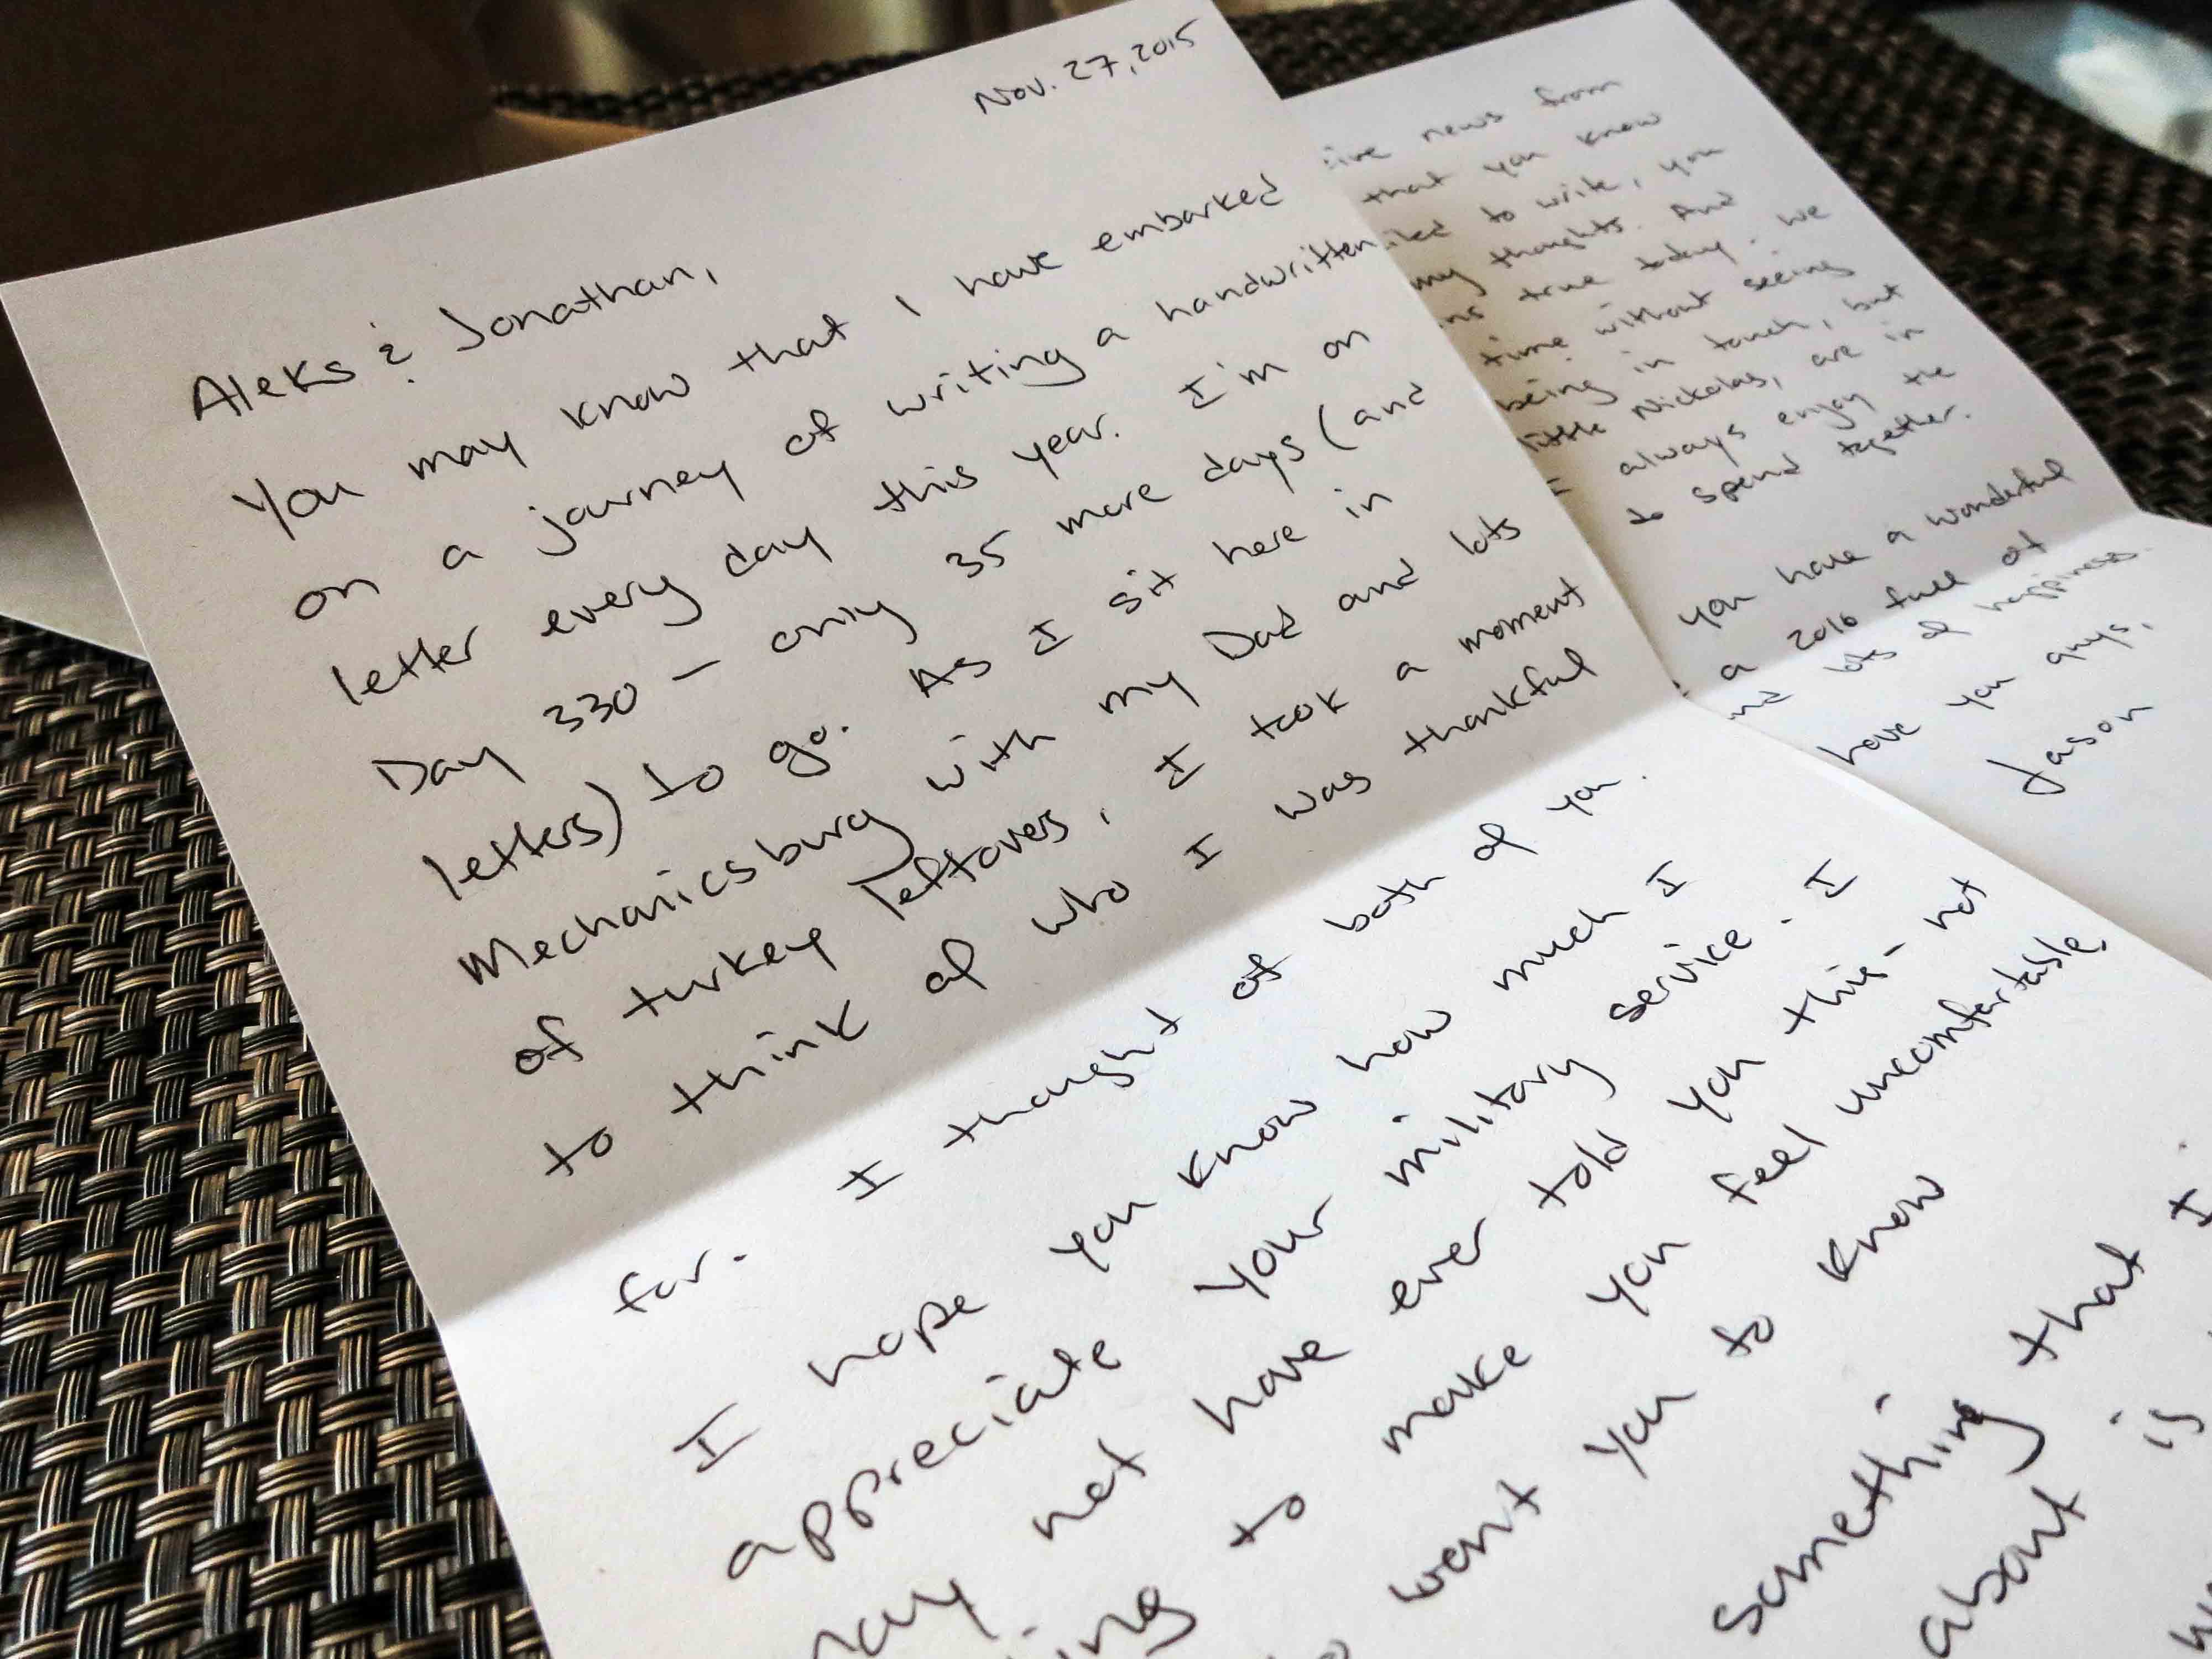 Nov. 27, 2015
Aleks & Jonathan,
You may know that I have embarked
on a journey of writing a handwritten
letter every day this year. I'm on
Day 330 – only 35 more days (and
letters) to go. As I sit here in
Mechanicsburg with my Dad and lots
of turkey leftovers, I took a moment
to think of who I was thankful
for. I thought of both of you.
I hope you know how much I
appreciate your military service. I
may not have ever told you this – not
to make you feel uncomfortable,
want you to know
something that I
about is
news from
that you know
to write, you
my thoughts. And
true today. We
time without seeing
being in touch, but
little Nickolas, are in
always enjoy the
to spend together.
you have a wonderful
a 2016 full of
lots of happiness.
Love you guys,
Jason